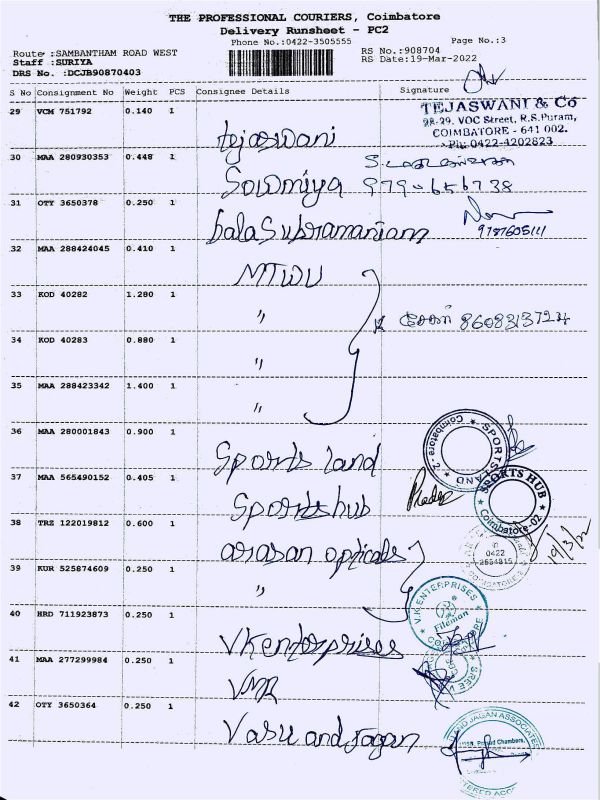 THE PROFESSIONAL COURIERS, Coimbatore
Delivery Runsheet - PC2
Phone No.:0422-3505555
Page No.:3
Route :SAMBANTHAM ROAD WEST
RS No.:908704
Staff :SURIYA
RS Date:19-Mar-2022
DRS No. :DCJB90870403
S No Consignment No Weight PCS Consignee Details Signature
29 VCM 751792 0.140 1
tejaswani
TEJASWANI & Co
28-29, VOC Street, R.S.Puram,
COIMBATORE - 641 002.
Ph: 0422-4202823
30 MAA 280930353 0.448 1
Sowmiya
31 OTY 3650378 0.250 1
balaSubramaniam
9787605111
32 MAA 288424045 0.410 1
MTWU
33 KOD 40282 1.280 1
"
8608313724
34 KOD 40283 0.880 1
"
35 MAA 288423342 1.400 1
"
36 MAA 280001843 0.900 1
Sports land
SPORTS LAND Coimbatore - 2
37 MAA 565490152 0.405 1
Sportshub
SPORTS HUB Coimbatore-02
38 TRZ 122019812 0.600 1
arasan opticals
0422
19/3/22
39 KUR 525874609 0.250 1
"
40 HRD 711923873 0.250 1
VKenterprises
V.K ENTERPRISES
Fileman
41 MAA 277299984 0.250 1
VMR
SREE V
42 OTY 3650364 0.250 1
Vasu and Jagan
JAGAN ASSOCIATES
Chambers,